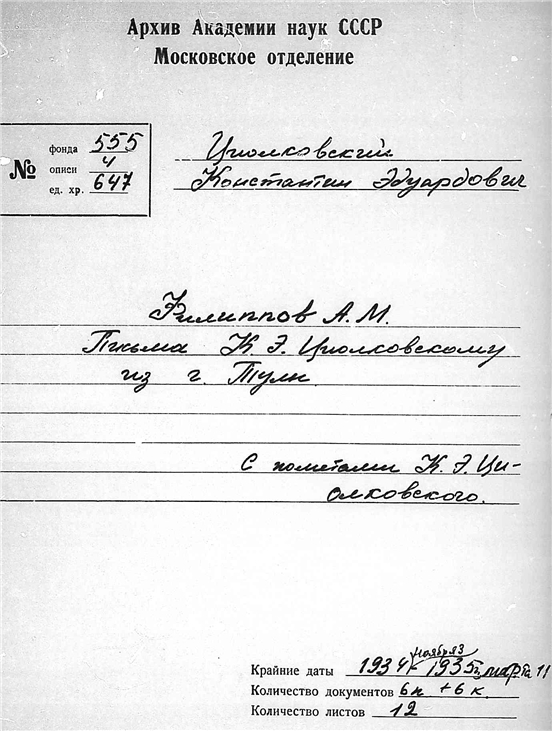 Архив Академии наук СССР
Московское отделение
№
фонда 555
описи 4
ед. хр. 647
Циолковский
Константин Эдуардович
Филиппов А.М.
Письма К.Э. Циолковскому
из г. Тулы
С пометами К.Э. Ци-
олковского.
ноября 3
Крайние даты 1934 - 1935 марта 11
Количество документов 6п + 6к.
Количество листов 12